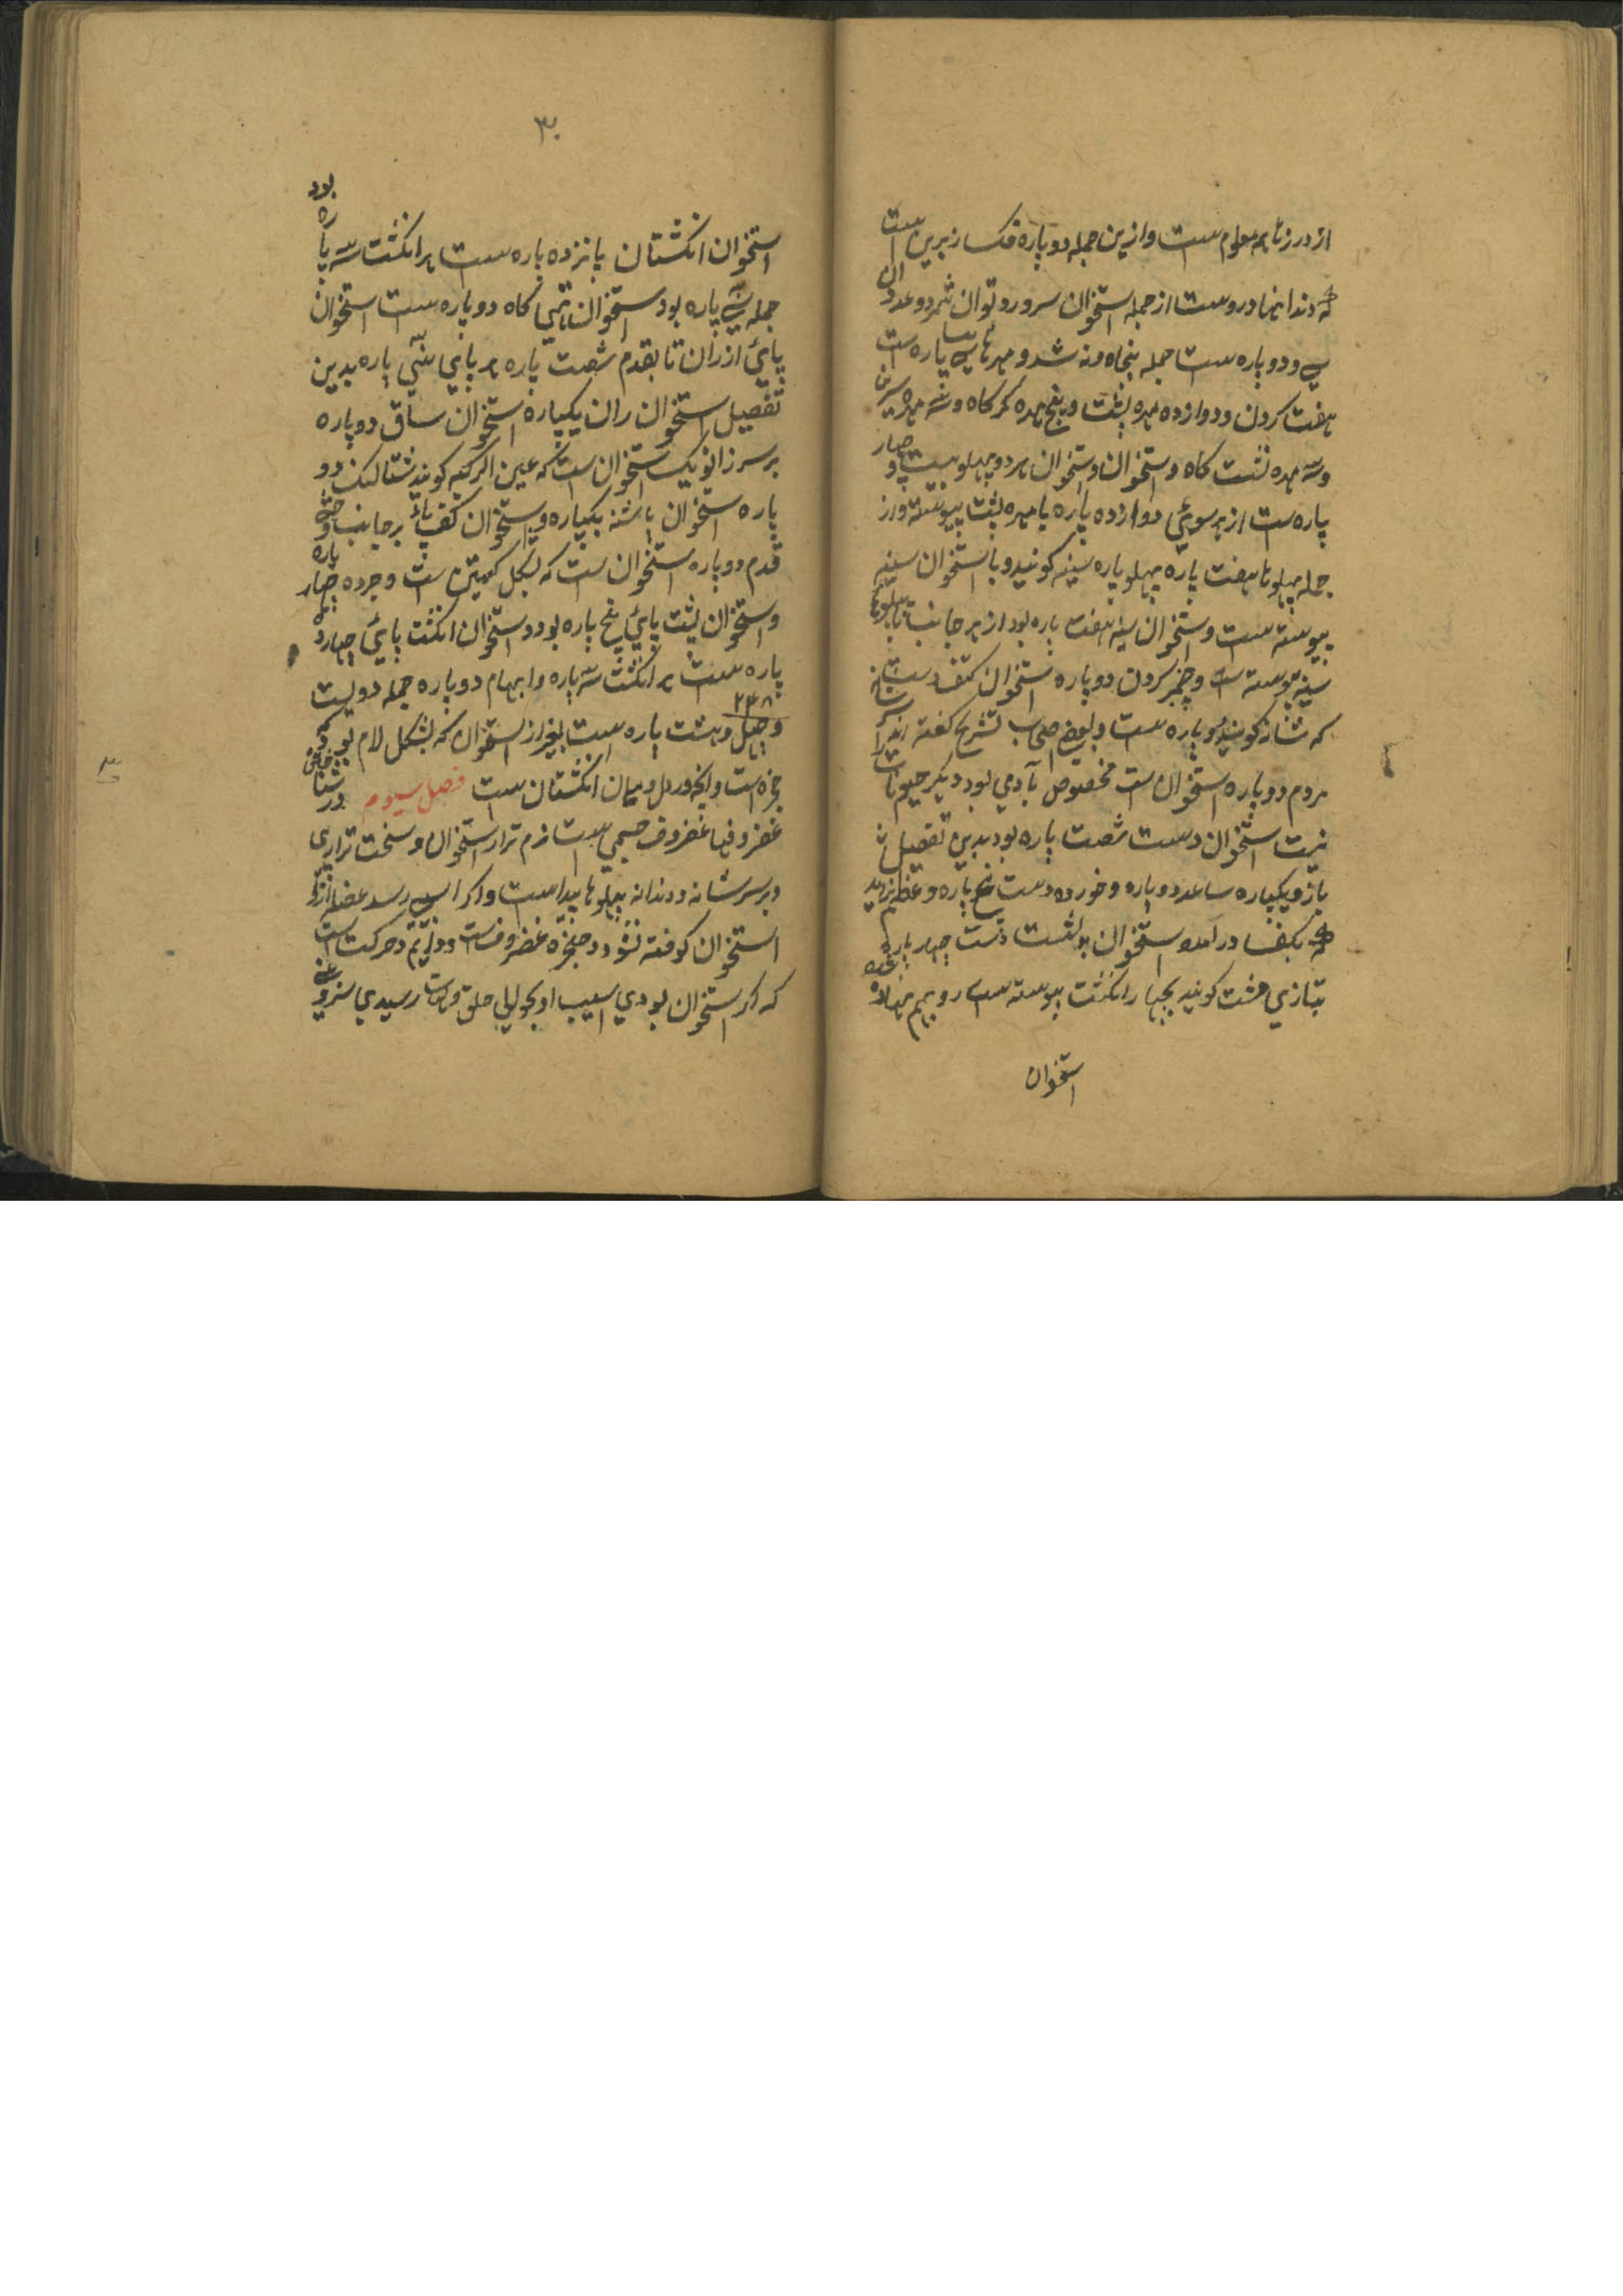 از درزها همه معلوم ست و ازین جمله دو پاره فک زبرین ست
که دندانها دروست از جمله استخوان سر و رو توان شمرد و عدد آن
سی و دو پاره ست جمله پنجاه و نه شد و مهرها سی پاره ست
هفت کردن و دوازده مهره پشت و پنج مهره کمرکاه و سه مهره سرین
و سه مهره نشست کاه و استخوان هر دو پهلو بیست و چهار
پاره ست از هر سوئی دوازده پاره با مهره پشت پیوسته و از
جمله پهلوها هفت پاره پهلو پاره سینه کویند و با استخوان سینه
پیوسته ست و استخوان سینه هفت پاره بود از هر جانب با پهلوها
سینه پیوسته است و چنبر کردن دو پاره استخوان کتف دست
که شانه کویند دو پاره ست و بعضی اصحاب تشریح کفته اند
مردم دو پاره استخوان ست مخصوص بآدمی بود دیکر حیوانات
نیست استخوان دست شصت پاره بود بدین تفصیل
بازو یکپاره ساعد دو پاره و خورده دست پنج پاره و عظم
که بکف در آمده استخوان پشت دست چهار پاره
بتازی مشت کویند بچهار انکشت پیوسته ست رو بهم نهاده
استخوان
۳۰
بود
استخوان انکشتان پانزده پاره ست هر انکشت سه پاره
جمله سی پاره بود استخوان کاه دو پاره ست استخوان
پائی از ران تا بقدم شصت پاره هر پایی سی پاره بدین
تفصیل استخوان ران یکپاره استخوان ساق دو پاره
بر سر زانو یک استخوان ست که عین الرکبه کویند شتالنک دو
پاره استخوان پاشنه یکپاره و استخوان کف پائ بر جانب
قدم دو پاره استخوان ست که بشکل کعبتین ست و خرده چهار پاره
و استخوان پشت پائی پنج پاره بود و استخوان انکشت پائی چهارده
پاره ست هر انکشت سه پاره و ابهام دو پاره جمله دویست
۲۴۸
و چهل و هشت پاره ست بغیر از استخوان که بشکل لام بود که در
حنجره است و آنچه در دل و میان انکشتان ست فصل سیوم در شناختن
غضروفها غضروف جسمی ست نرم تر از استخوان و سخت تر از پی
و بر سر شانه و دندانه پهلوها پیداست و اکر آسیبی رسد عضله از
استخوان کوفته نشود و حنجره غضروف ست و دایم در حرکت ست
که اکر استخوان بودی آسیب او بحوالی حلق رسیدی
۳